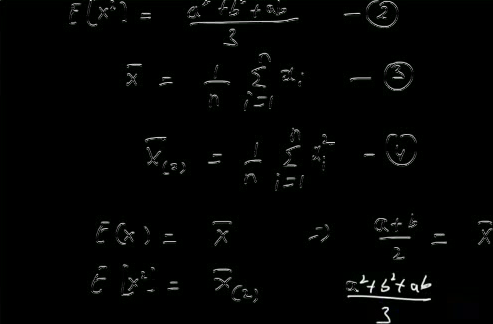 E[x²] = a²+b²+ab / 3 — ②
x̄ = 1/n Σ_{i=1}^{n} x_i — ③
x̄_(2) = 1/n Σ_{i=1}^{n} x_i² — ④
E(x) = x̄ ⇒ a+b / 2 = x̄
E[x²] = x̄_(2) a²+b²+ab / 3